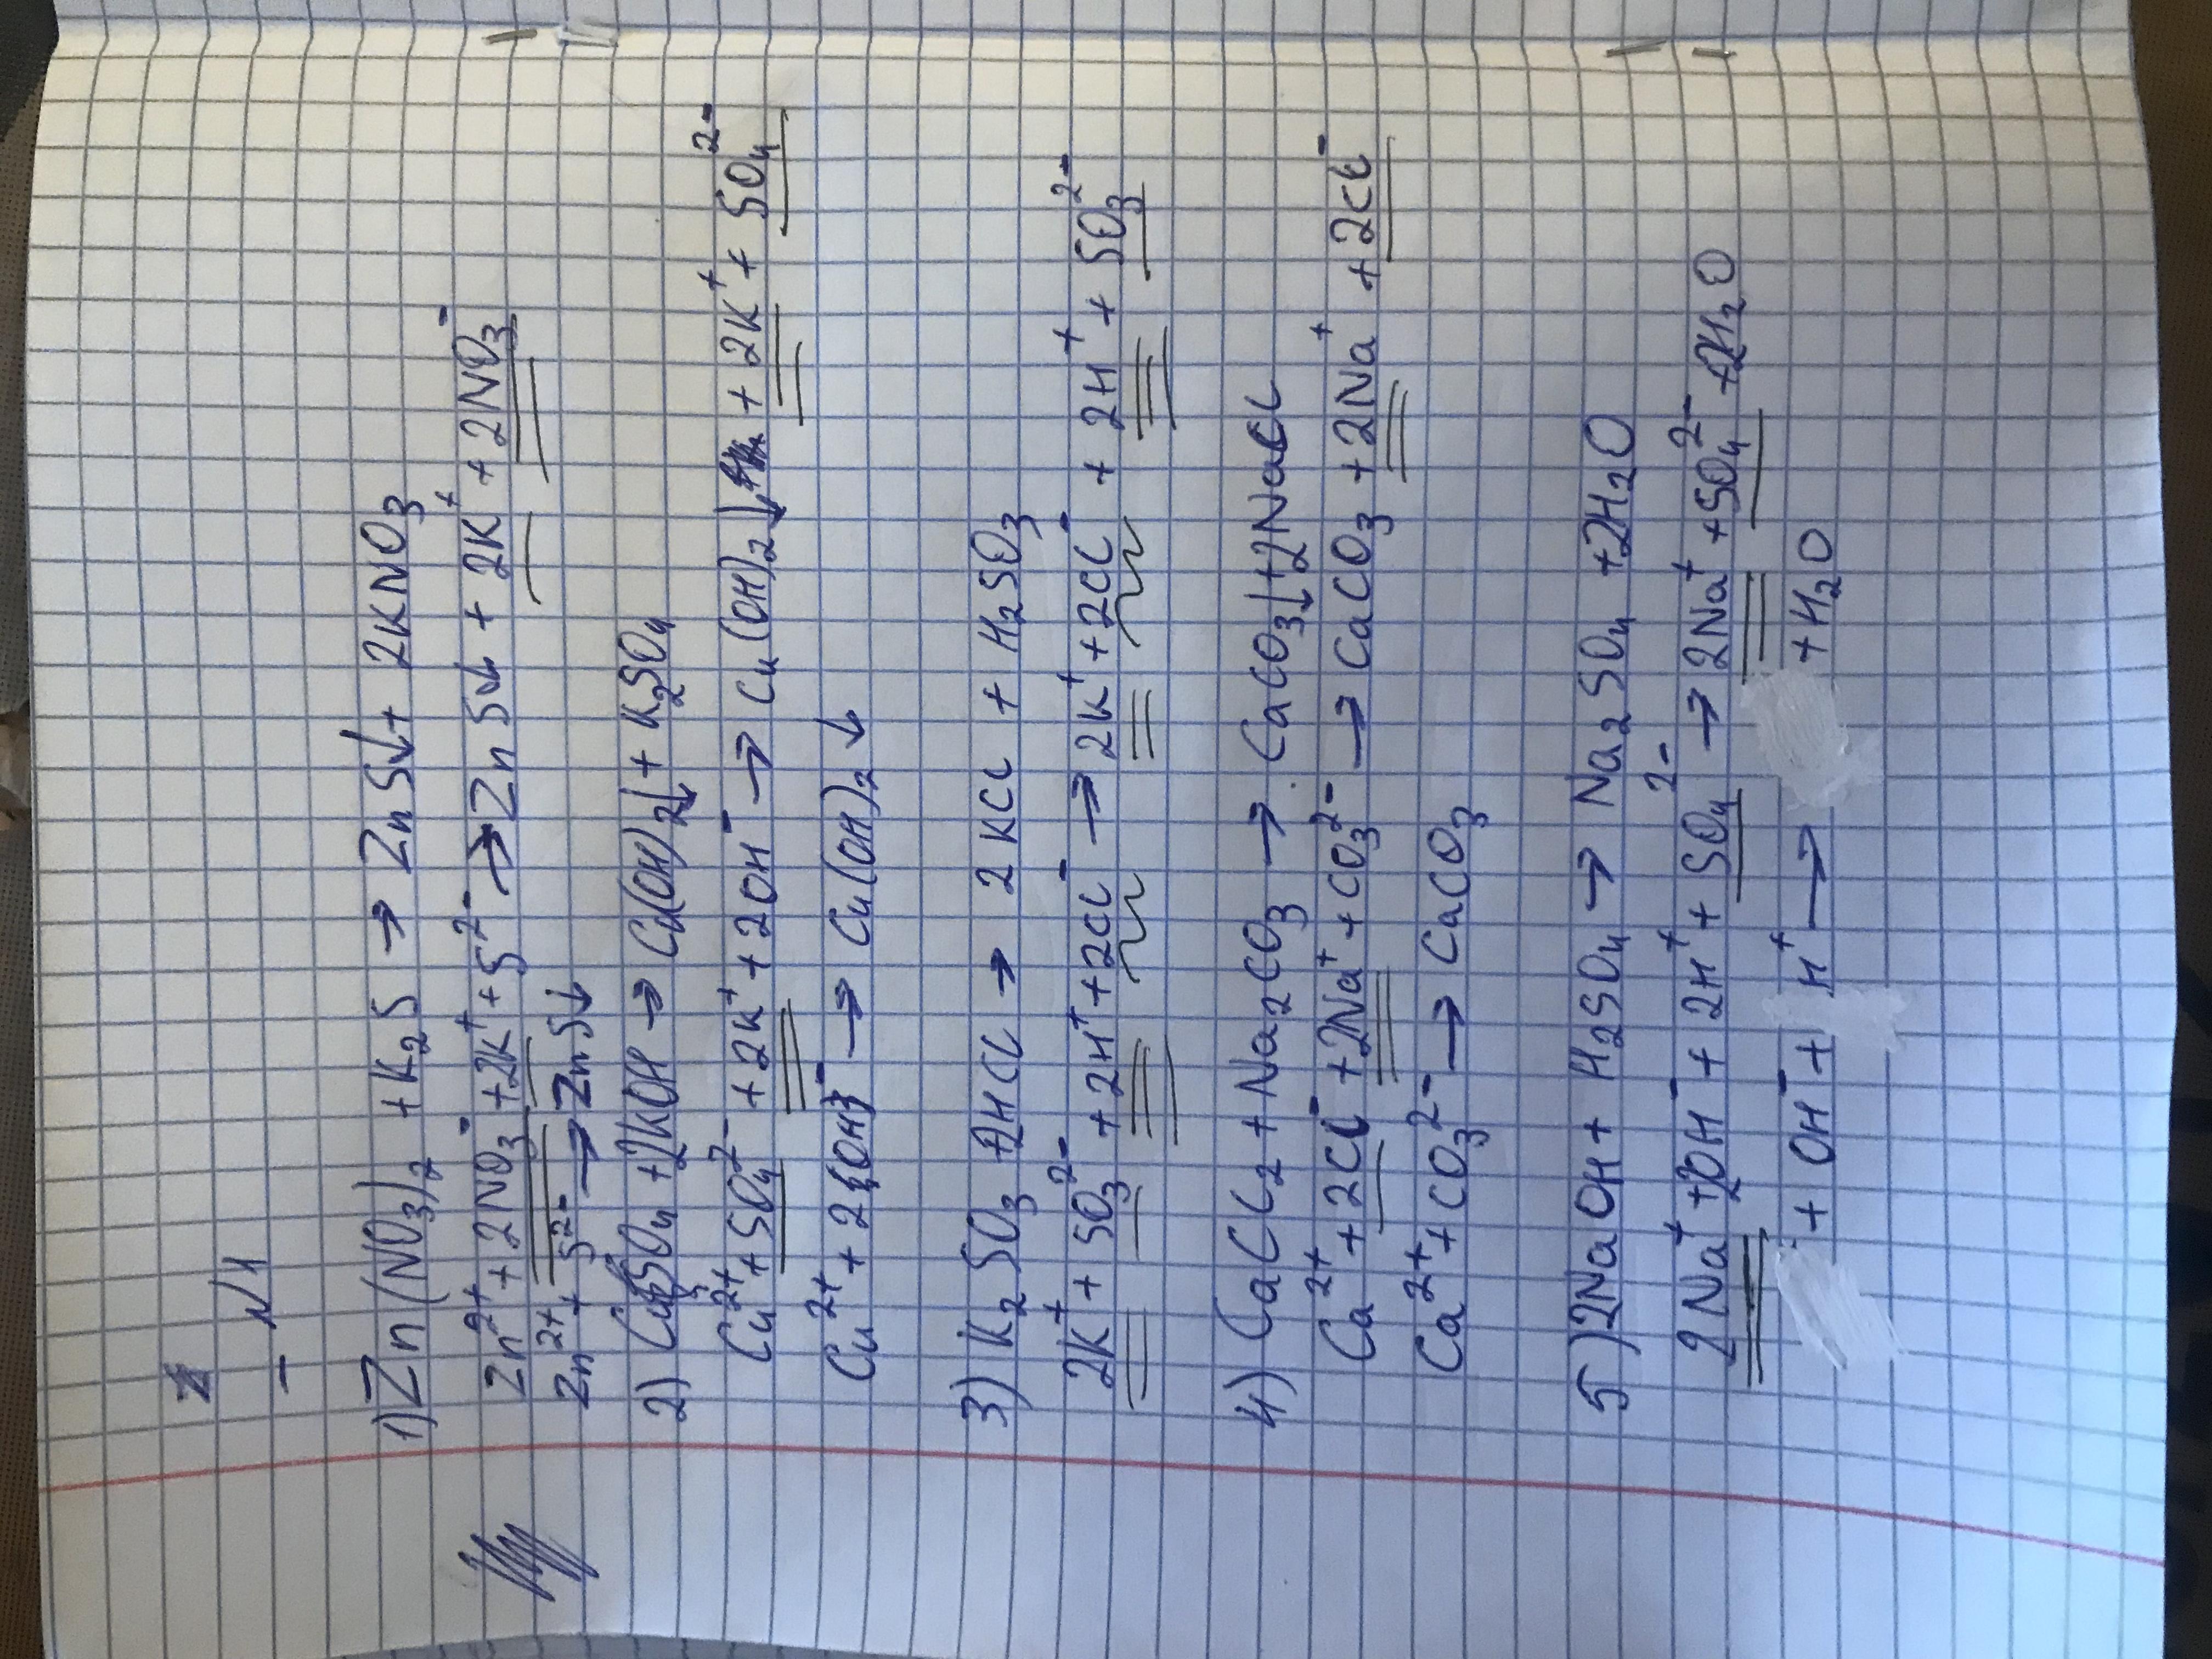 N1
1) Zn(NO3)2 + K2S → ZnS↓ + 2KNO3
Zn2+ + 2NO3- + 2K+ + S2- → ZnS↓ + 2K+ + 2NO3-
Zn2+ + S2- → ZnS↓
2) CuSO4 + 2KOH → Cu(OH)2↓ + K2SO4
Cu2+ + SO42- + 2K+ + 2OH- → Cu(OH)2↓ + 2K+ + SO42-
Cu2+ + 2OH- → Cu(OH)2↓
3) K2SO3 + 2HCl → 2KCl + H2SO3
2K+ + SO32- + 2H+ + 2Cl- → 2K+ + 2Cl- + 2H+ + SO32-
4) CaCl2 + Na2CO3 → CaCO3↓ + 2NaCl
Ca2+ + 2Cl- + 2Na+ + CO32- → CaCO3 + 2Na+ + 2Cl-
Ca2+ + CO32- → CaCO3
5) 2NaOH + H2SO4 → Na2SO4 + 2H2O
2Na+ + 2OH- + 2H+ + SO42- → 2Na+ + SO42- + 2H2O
+ OH- + H+ → + H2O